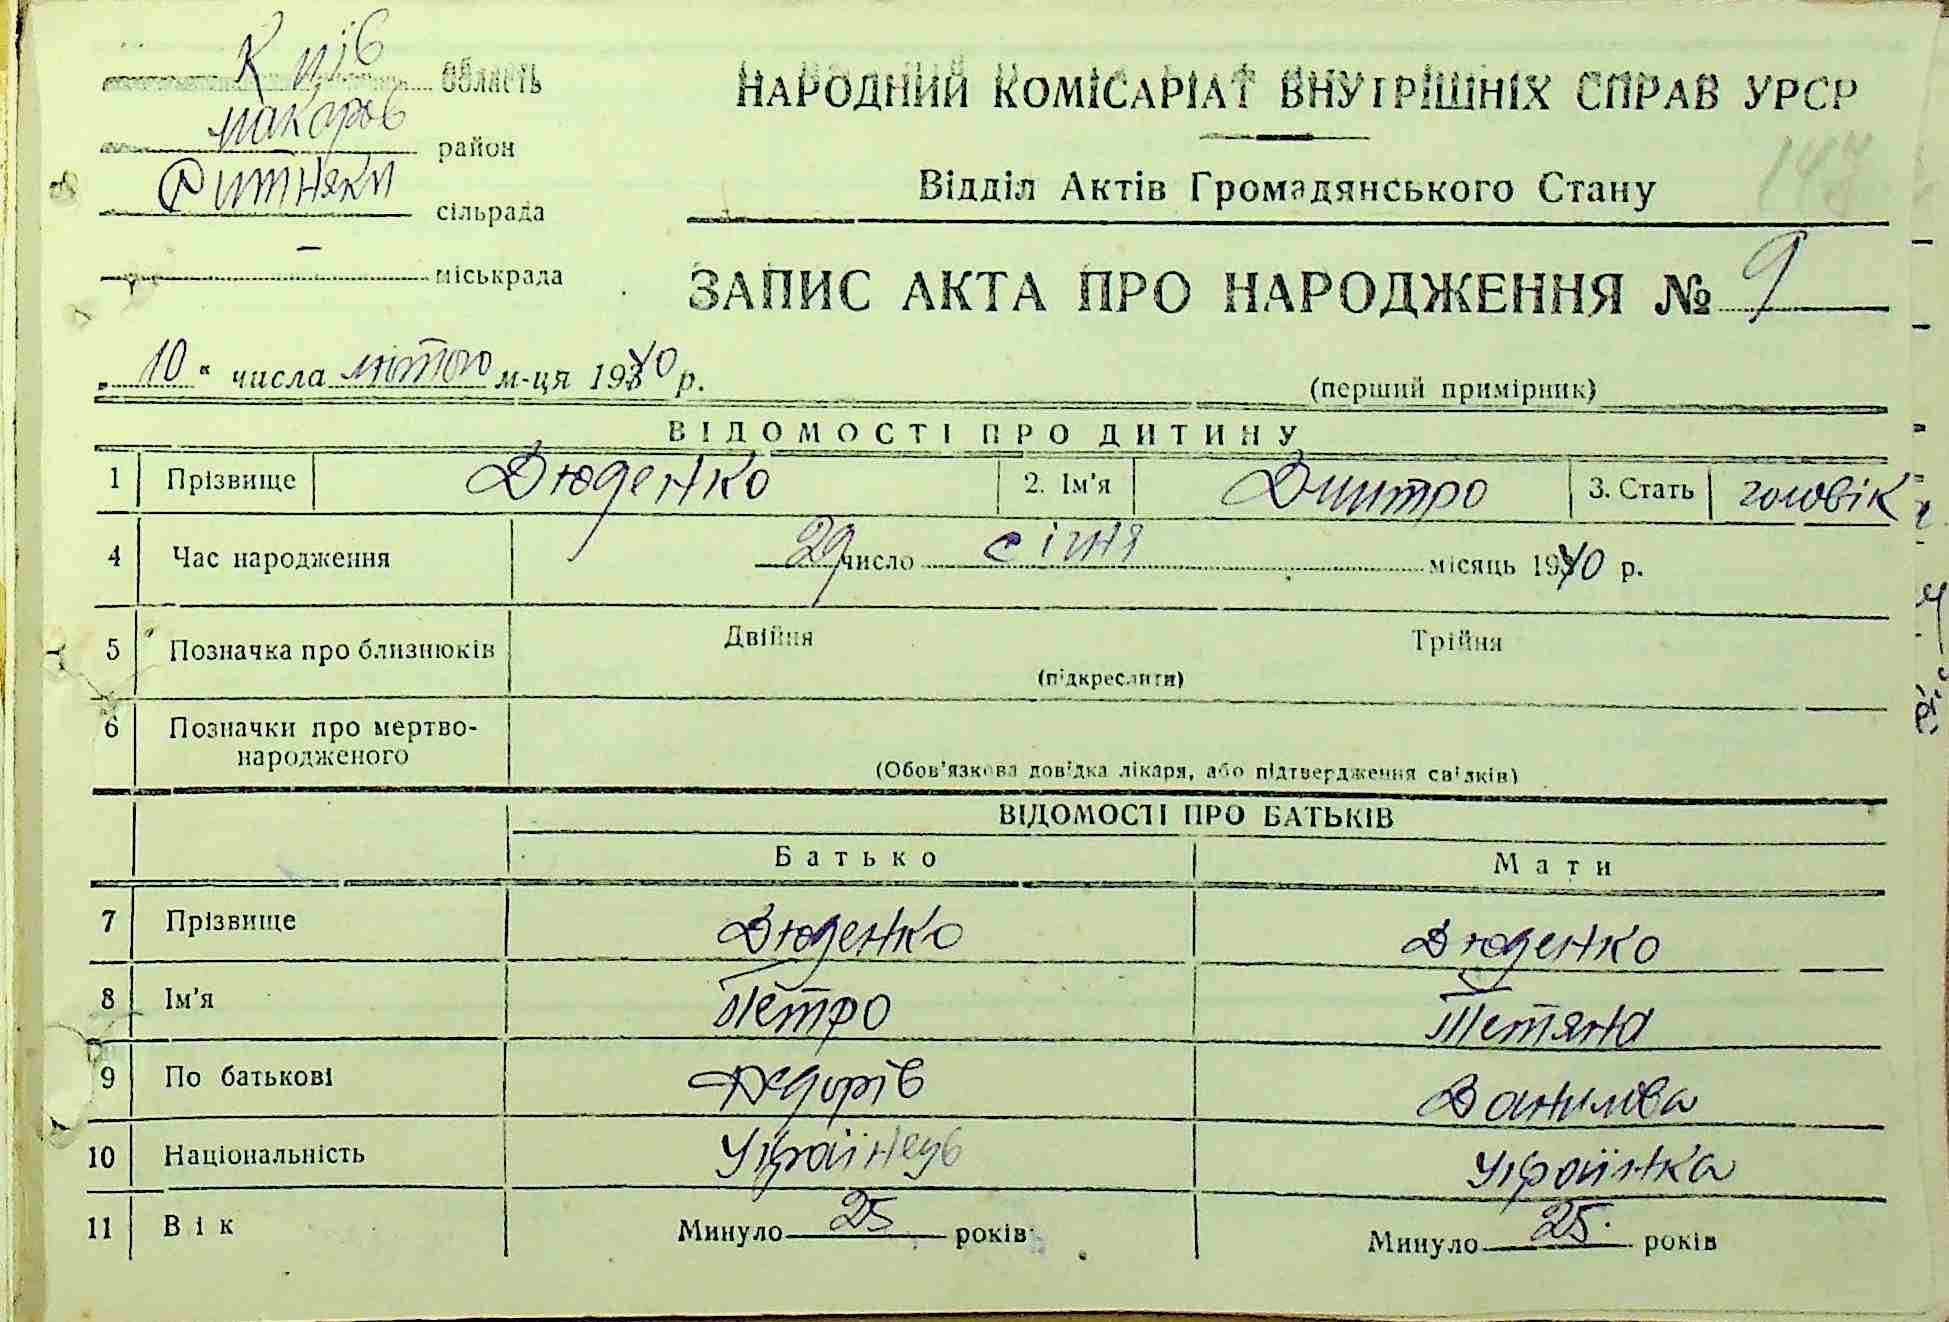 Київ область
макарів район
Ситняки сільрада
— міськрада
НАРОДНИЙ КОМІСАРІАТ ВНУТРІШНІХ СПРАВ УРСР
Відділ Актів Громадянського Стану
147
ЗАПИС АКТА ПРО НАРОДЖЕННЯ № 9
„10“ числа лютого м-ця 1940 р.
(перший примірник)
ВІДОМОСТІ ПРО ДИТИНУ
1 Прізвище Дюденко 2. Ім'я Дмитро 3. Стать чоловік
4 Час народження 29 число січня місяць 1940 р.
5 Позначка про близнюків Двійня Трійня
(підкреслити)
6 Позначки про мертво-
народженого
(Обов'язкова довідка лікаря, або підтвердження свідків)
ВІДОМОСТІ ПРО БАТЬКІВ
Батько Мати
7 Прізвище Дюденко Дюденко
8 Ім'я Петро Тетяна
9 По батькові Федорів Данилова
10 Національність Українець Українка
11 Вік Минуло 25 років Минуло 25 років